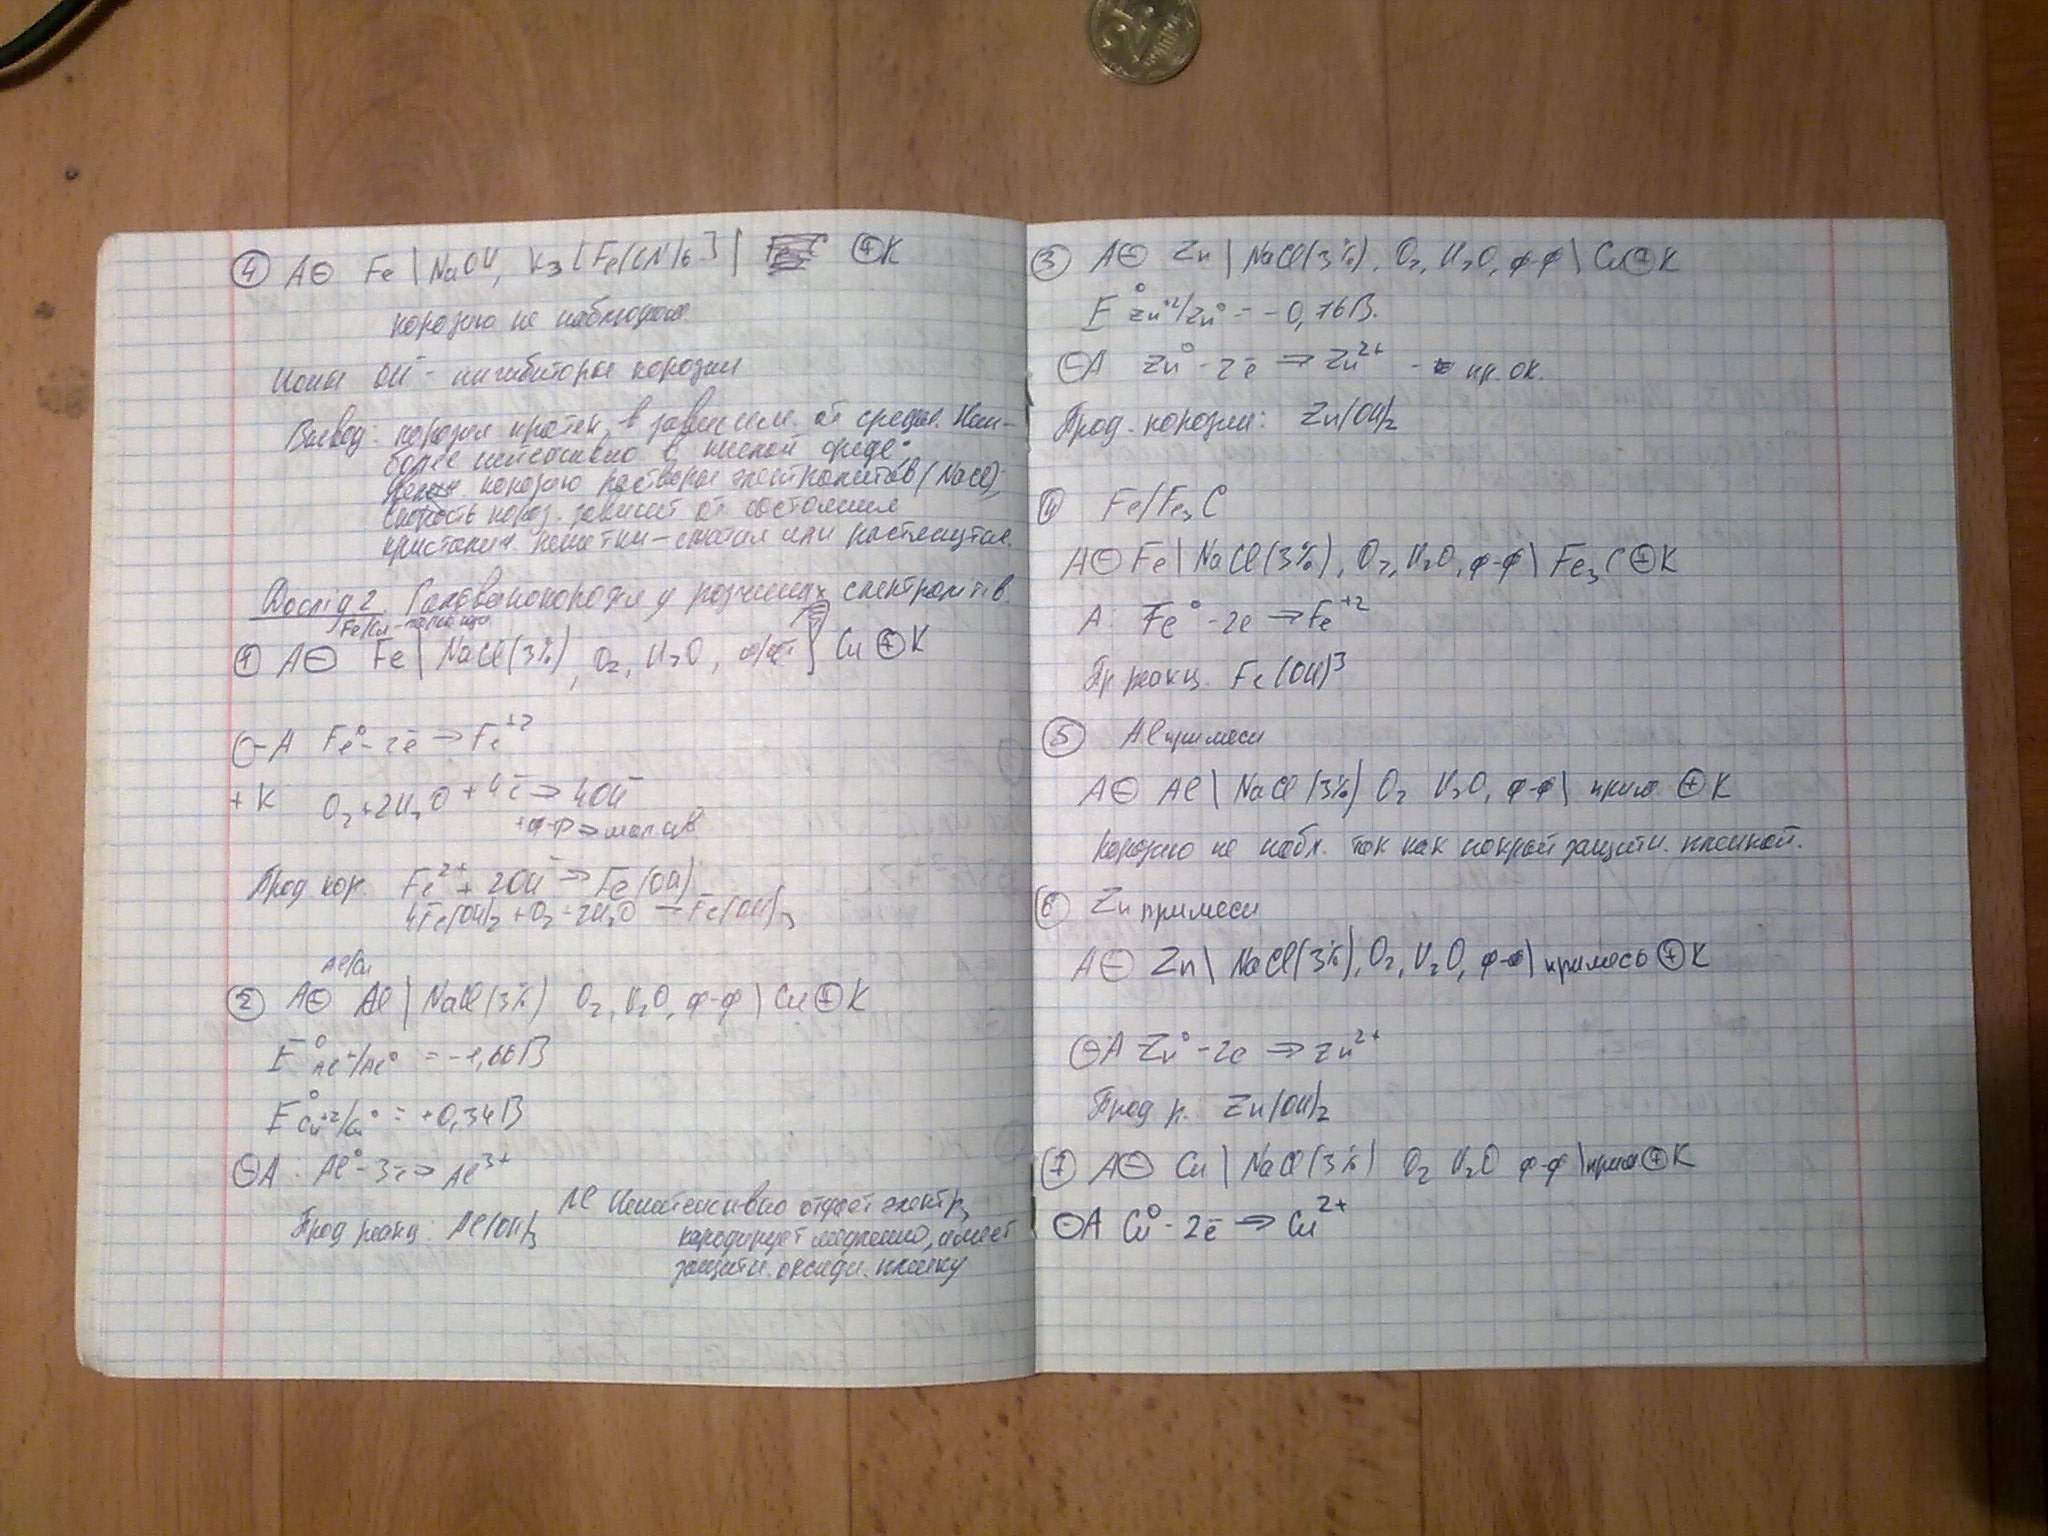 ④ A⊖ Fe | NaOH, K₃[Fe(CN)₆] | ⊕K
корозию не наблюдаю
Ионы OH⁻ - ингибиторы корозии
Вывод: корозия протек. в зависим. от среды. Наи-
более интенсивно в кислой среде.
корозию растворы электролитов (NaCl),
скорость короз. зависит от состояния
кристалич. решетки - сжатая или растянутая.
Дослід 2. Гальванокорозия у розчинах електролітів.
Fe/Cu
① A⊖ Fe | NaCl(3%), O₂, H₂O, ф/фт | Cu ⊕K
⊖A Fe⁰ - 2ē ⇒ Fe⁺²
+K O₂ + 2H₂O + 4ē ⇒ 4OH⁻
+ф-ф ⇒ малав.
Прод кор. Fe²⁺ + 2OH⁻ ⇒ Fe(OH)
4Fe(OH)₂ + O₂ - 2H₂O → Fe(OH)₃
Al/Cu
② A⊖ Al | NaCl(3%) O₂, H₂O, ф-ф | Cu⊕K
E⁰ Al⁺/Al⁰ = -1,66В
E⁰ Cu⁺²/Cu⁰ = +0,34В
⊖A: Al⁰ - 3ē ⇒ Al³⁺
Прод реакц: Al(OH)₃
Al Неинтенсивно отдает электр,
кародирует медленно, имеет
защитн. оксидн. пленку
③ A⊖ Zn | NaCl(3%), O₂, H₂O, ф-ф | Cu⊕K
E⁰ Zn⁺²/Zn⁰ = -0,76В.
⊖A Zn⁰ - 2ē ⇒ Zn²⁺ - пр. ок.
Прод. корозии: Zn(OH)₂
④ Fe/Fe₃C
A⊖ Fe | NaCl(3%), O₂, H₂O, ф-ф | Fe₃C⊕K
A: Fe⁰ - 2e ⇒ Fe⁺²
Пр реакц. Fe(OH)³
⑤ Al примеси
A⊖ Al | NaCl(3%) O₂ H₂O, ф-ф | прим ⊕K
Корозию не набл. так как покрыт защитн. пленкой.
⑥ Zn примеси
A⊖ Zn | NaCl(3%), O₂, H₂O, ф-ф | примесь ⊕K
⊖A Zn⁰ - 2e ⇒ Zn²⁺
Прод р. Zn(OH)₂
⑦ A⊖ Cu | NaCl(3%) O₂ H₂O ф-ф | прим⊕K
⊖A Cu⁰ - 2ē ⇒ Cu²⁺